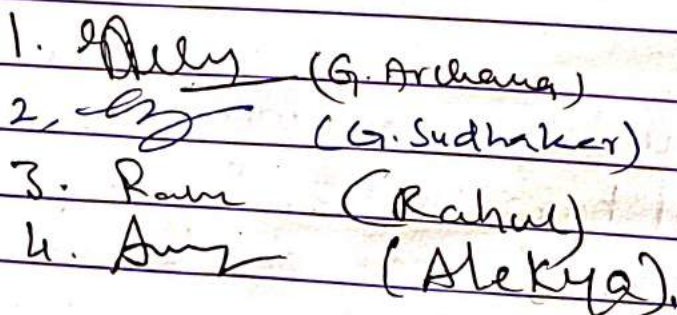 1. (G. Archana)
2, (G. Sudhaker)
3. (Rahul)
4. (Alekya).